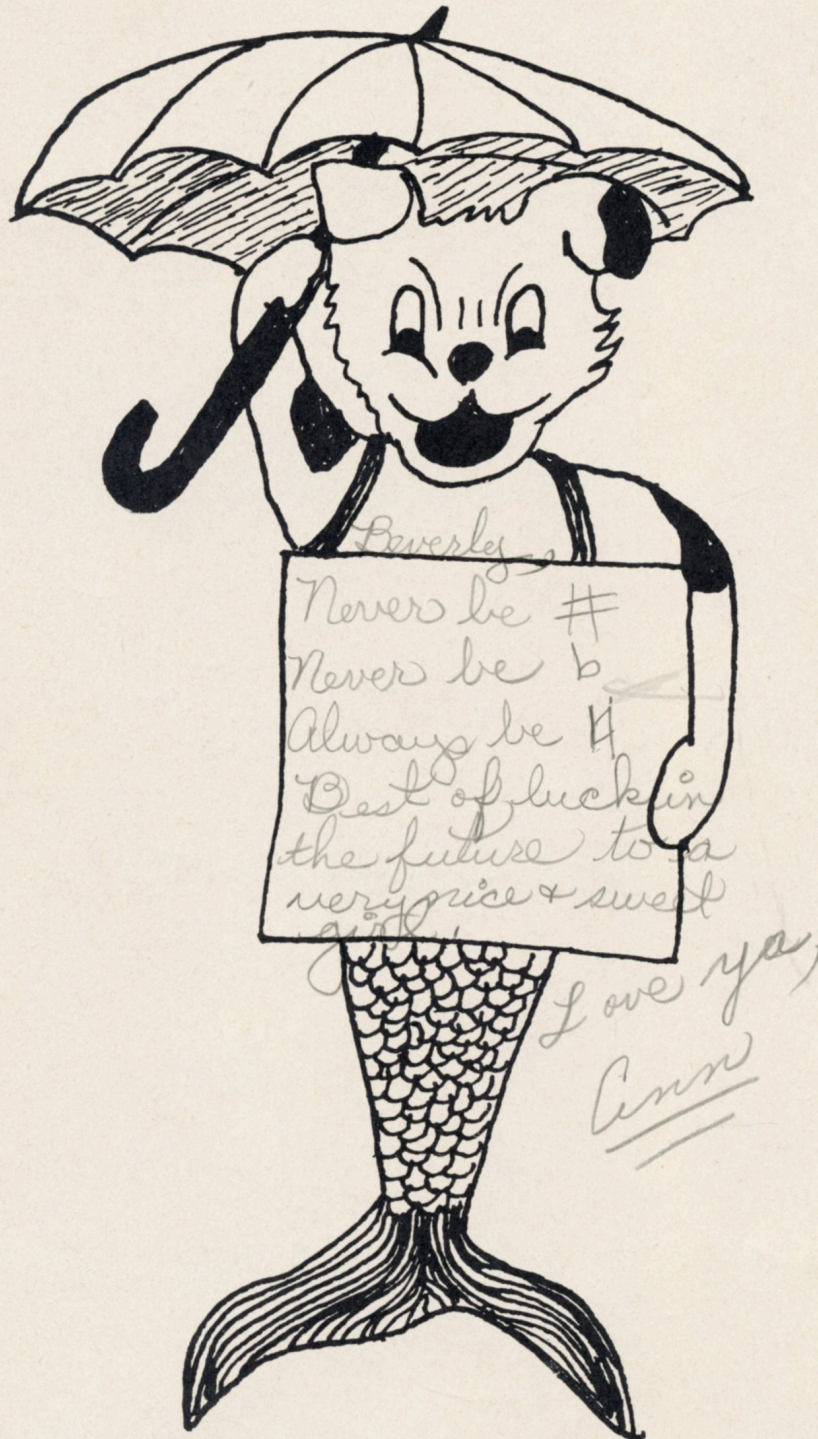 Beverly,
Never be #
Never be ♭
Always be ♮
Best of luck in
the future to a
very nice & sweet
girl.
Love ya,
Ann